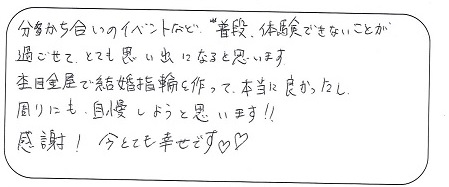 分かち合いのイベントなど、普段、体験できないことが
過ごせて、とても思い出になると思います
杢目金屋で結婚指輪を作って、本当に良かったし、
周りにも、自慢しようと思います!!
感謝! 今とても幸せです♡♡